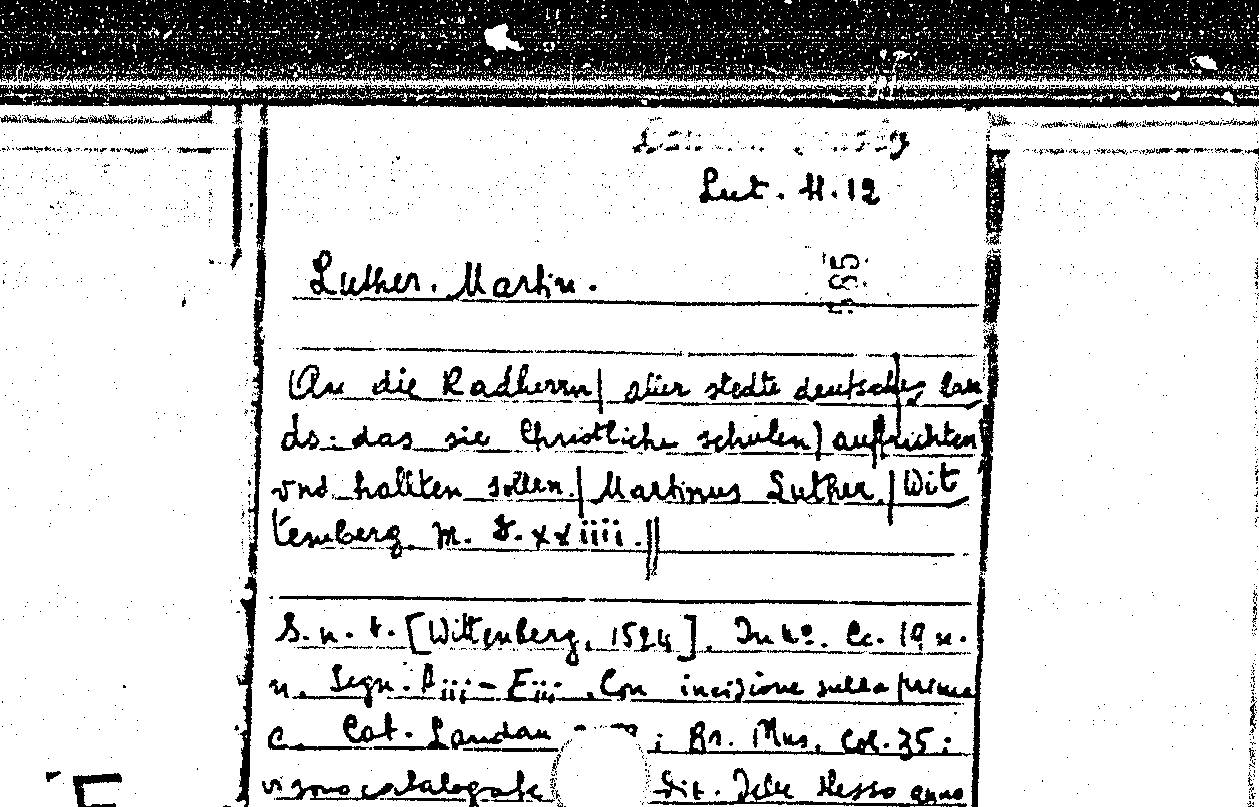 Lut. II.12
Luther. Martin.
585
An die Radherrn| aller stedte deutsches lan
ds: das sie Christliche schulen| auffrichten
vnd hallten sollen.| Martinus Luther.| Wit
temberg. M. D. xxiiii.||
S. n. t. [Wittenberg, 1524]. In 4º. Cc. 19 n.
n. Segn. Aiii - Eiii. Con incisione sulla prima
c. Cat. Landau ; Br. Mus. Col. 35:
vi sono catalogate dit. dello stesso anno